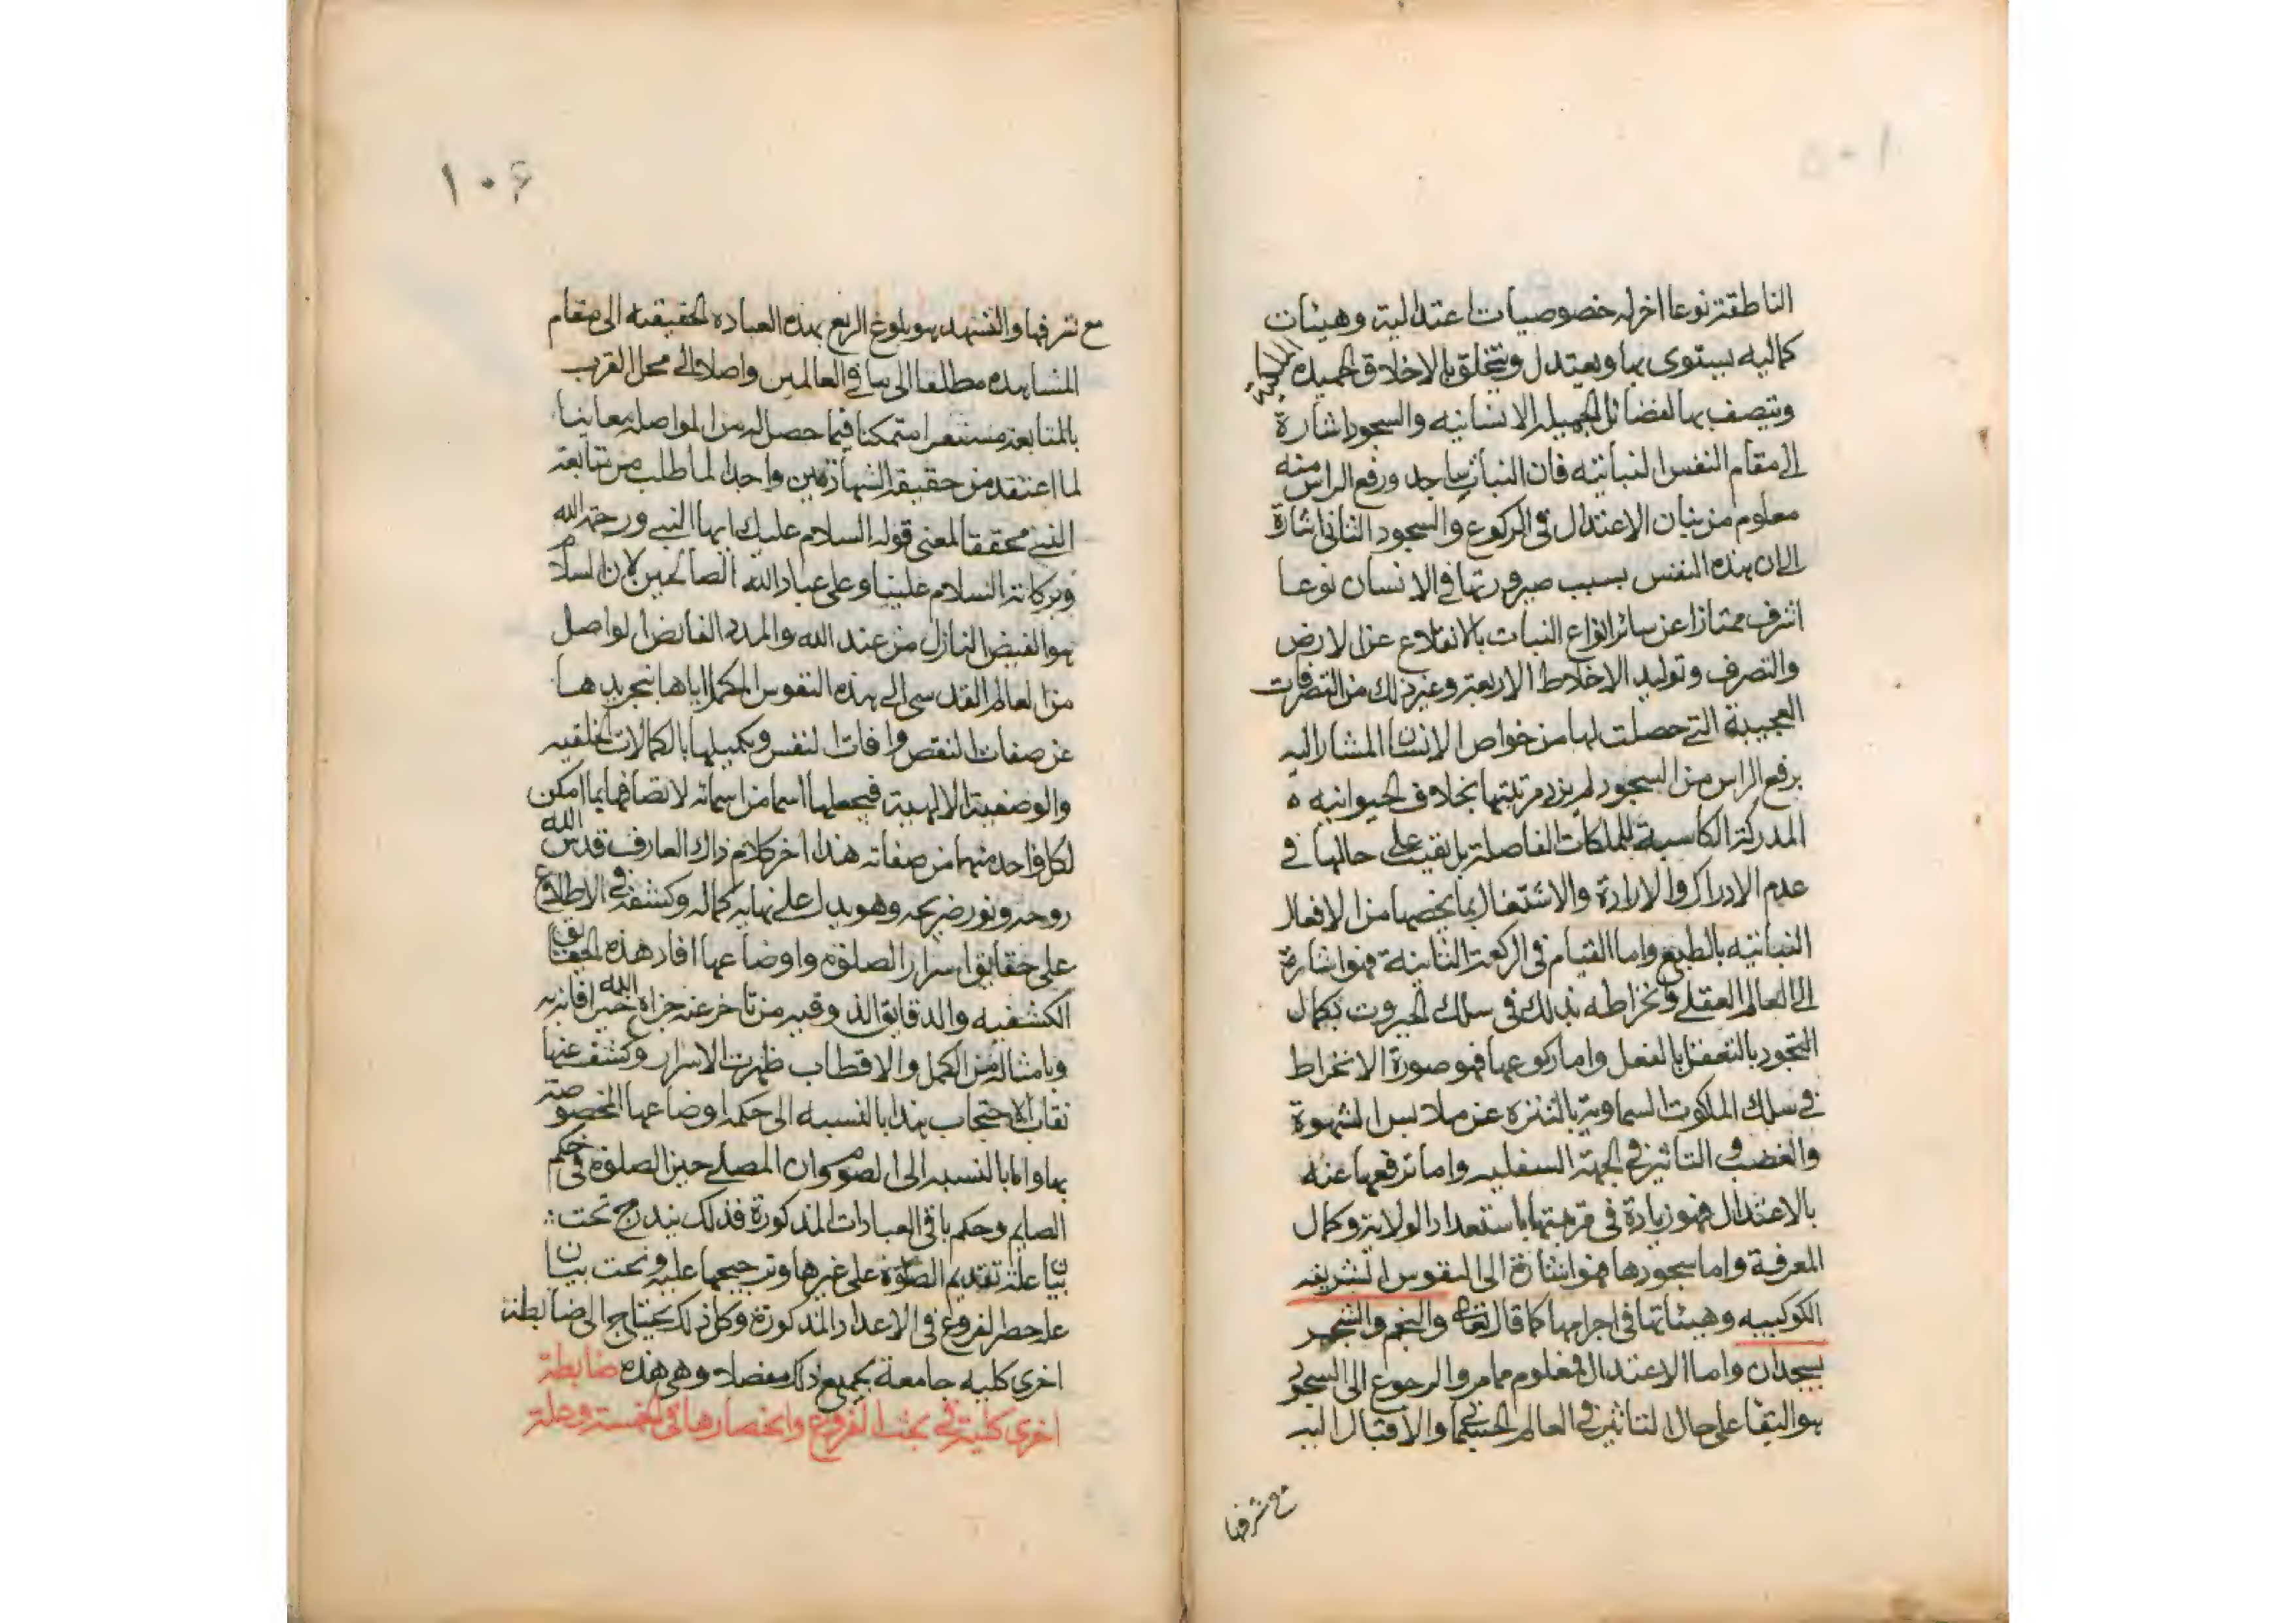 ١٠٥
الناطقة نوعا اخر له خصوصيات اعتدالية وهيئات
كماليه يستوى بها ويعتدل ويتخلق بالاخلاق الحميده
ويتصف بها لفضائل الجميلة الانسانيه والسجود اشارة
الى مقام النفس النباتيه فان النبات ساجد ورفع الراس منه
معلوم من بيان الاعتدال فى الركوع والسجود الثانى اشارة
الى ان هذه النفس بسبب صيرورتها فى الانسان نوعا
اشرف ممتازا عن سائر انواع النبات بالانقلاع عن الارض
والتصرف وتوليد الاخلاط الاربعة وغير ذلك من التصرفات
العجيبة التى حصلت لها من خواص الانسان المشار اليه
برفع الراس من السجود لم يزد مرتبتها بخلاف الحيوانيه ه
المدركة الكاسبة للملكات الفاضلة بل بقيت على حالها فى
عدم الادراك والارادة والاشتغال بما يخصها من الافعال
النباتيه بالطبع واما القيام فى الركعة الثانية فهو اشارة
الى العالم العقلى وانخراطه بذلك فى سلك الجبروت بكمال
التجرد بالتعقل بالفعل واما ركوعها فهو صورة الانخراط
فى سلك الملكوت السماوية بالتنزه عن ملابس الشهوة
والغضب و التاثير فى الجهة السفليه واما ترفعها عنه
بالاعتدال فهو زيادة فى قربتها باستعداد الولاية وكمال
المعرفة واما سجودها فهو اشارة الى النفوس الشريفه
الكوكبيه وهيئاتها فى اجرامها كما قال تعالى والنجم والشجر
يسجدان واما الاعتدال فمعلوم مما مر والرجوع الى السجود
هو البقا على حال التاثير فى العالم الحسى والاقبال اليه
مع شرفها
١٠٦
مع شرفها والتشهد هو بلوغ الرفع بهذه العبادة الحقيقيه الى مقام
المشاهده مطلعا الى ما فى العالمين واصلا الى محل القرب
بالمتابعة مستقرا متمكنا فيما حصل له من المواصله معاينا
لما اعتقد من حقيقة الشهادتين واجدا لما طلب من متابعة
النبى محققا لمعنى قوله السلام عليك ايها النبى ورحمة الله
وبركاته السلام علينا وعلى عباد الله الصالحين لان السلام
هو الفيض النازل من عند الله والمدد الفائض الواصل
من العالم القدسى الى هذه النفوس المكمل اياها بتجريدها
عن صفات النقص وافات النفس وتكميلها بالكمالات الخلقيه
والوصفية الالهية فيجعلها اسما من اسمائه لاتصافها بما امكن
لكل واحد منهما من صفاته هذا اخر كلام ذاك العارف قدس الله
روحه ونور ضريحه وهو يدل على نهاية كماله وكشفه فى الاطلاع
على حقايق اسرار الصلوة واوضاعها افاد هذه الحقايق
الكشفيه والدقايق الذوقيه من تاخر عنه جزاه الله خيرا فانه
وبامثاله من الكمل والاقطاب ظهرت الاسرار وكشف عنها
نقاب الاحتجاب هذا بالنسبه الى حكم اوضاعها المخصوصة
بها واما بالنسبه الى الصوم وان المصلى حين الصلوة فى حكم
الصايم وحكم باقى العبادات المذكورة فذلك يندرج تحت
بيان علة تقديم الصلوة على غيرها وترجيحها عليه وتحت بيان
علة حصر الفروع فى الاعداد المذكورة وكل ذلك يحتاج الى ضابطة
اخرى كليه جامعة بجميع ذلك مفصلا وهى هذه ضابطة
اخرى كلية فى بحث الفروع وانحصارها فى الخمسة وعلة